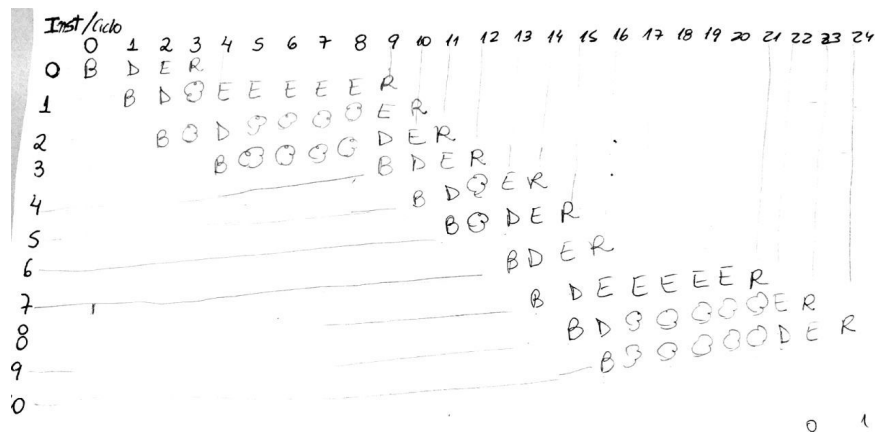 Inst/Ciclo
0 1 2 3 4 5 6 7 8 9 10 11 12 13 14 15 16 17 18 19 20 21 22 23 24
0 B D E R
1 B D E E E E E R
2 B D E R
3 B D E R
4 B D E R
5 B D E R
6 B D E R
7 B D E R
8 B D E E E E E R
9 B D E R
0 B D E R
0 1